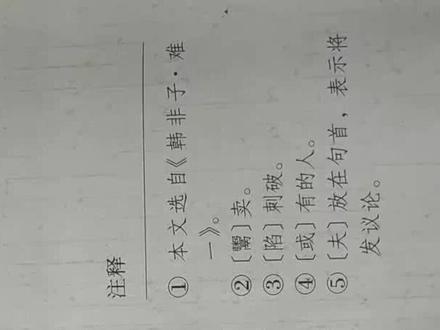 注释
① 本文选自《韩非子·难
一》。
② 〔鬻〕卖。
③ 〔陷〕刺破。
④ 〔或〕有的人。
⑤ 〔夫〕放在句首，表示将
发议论。